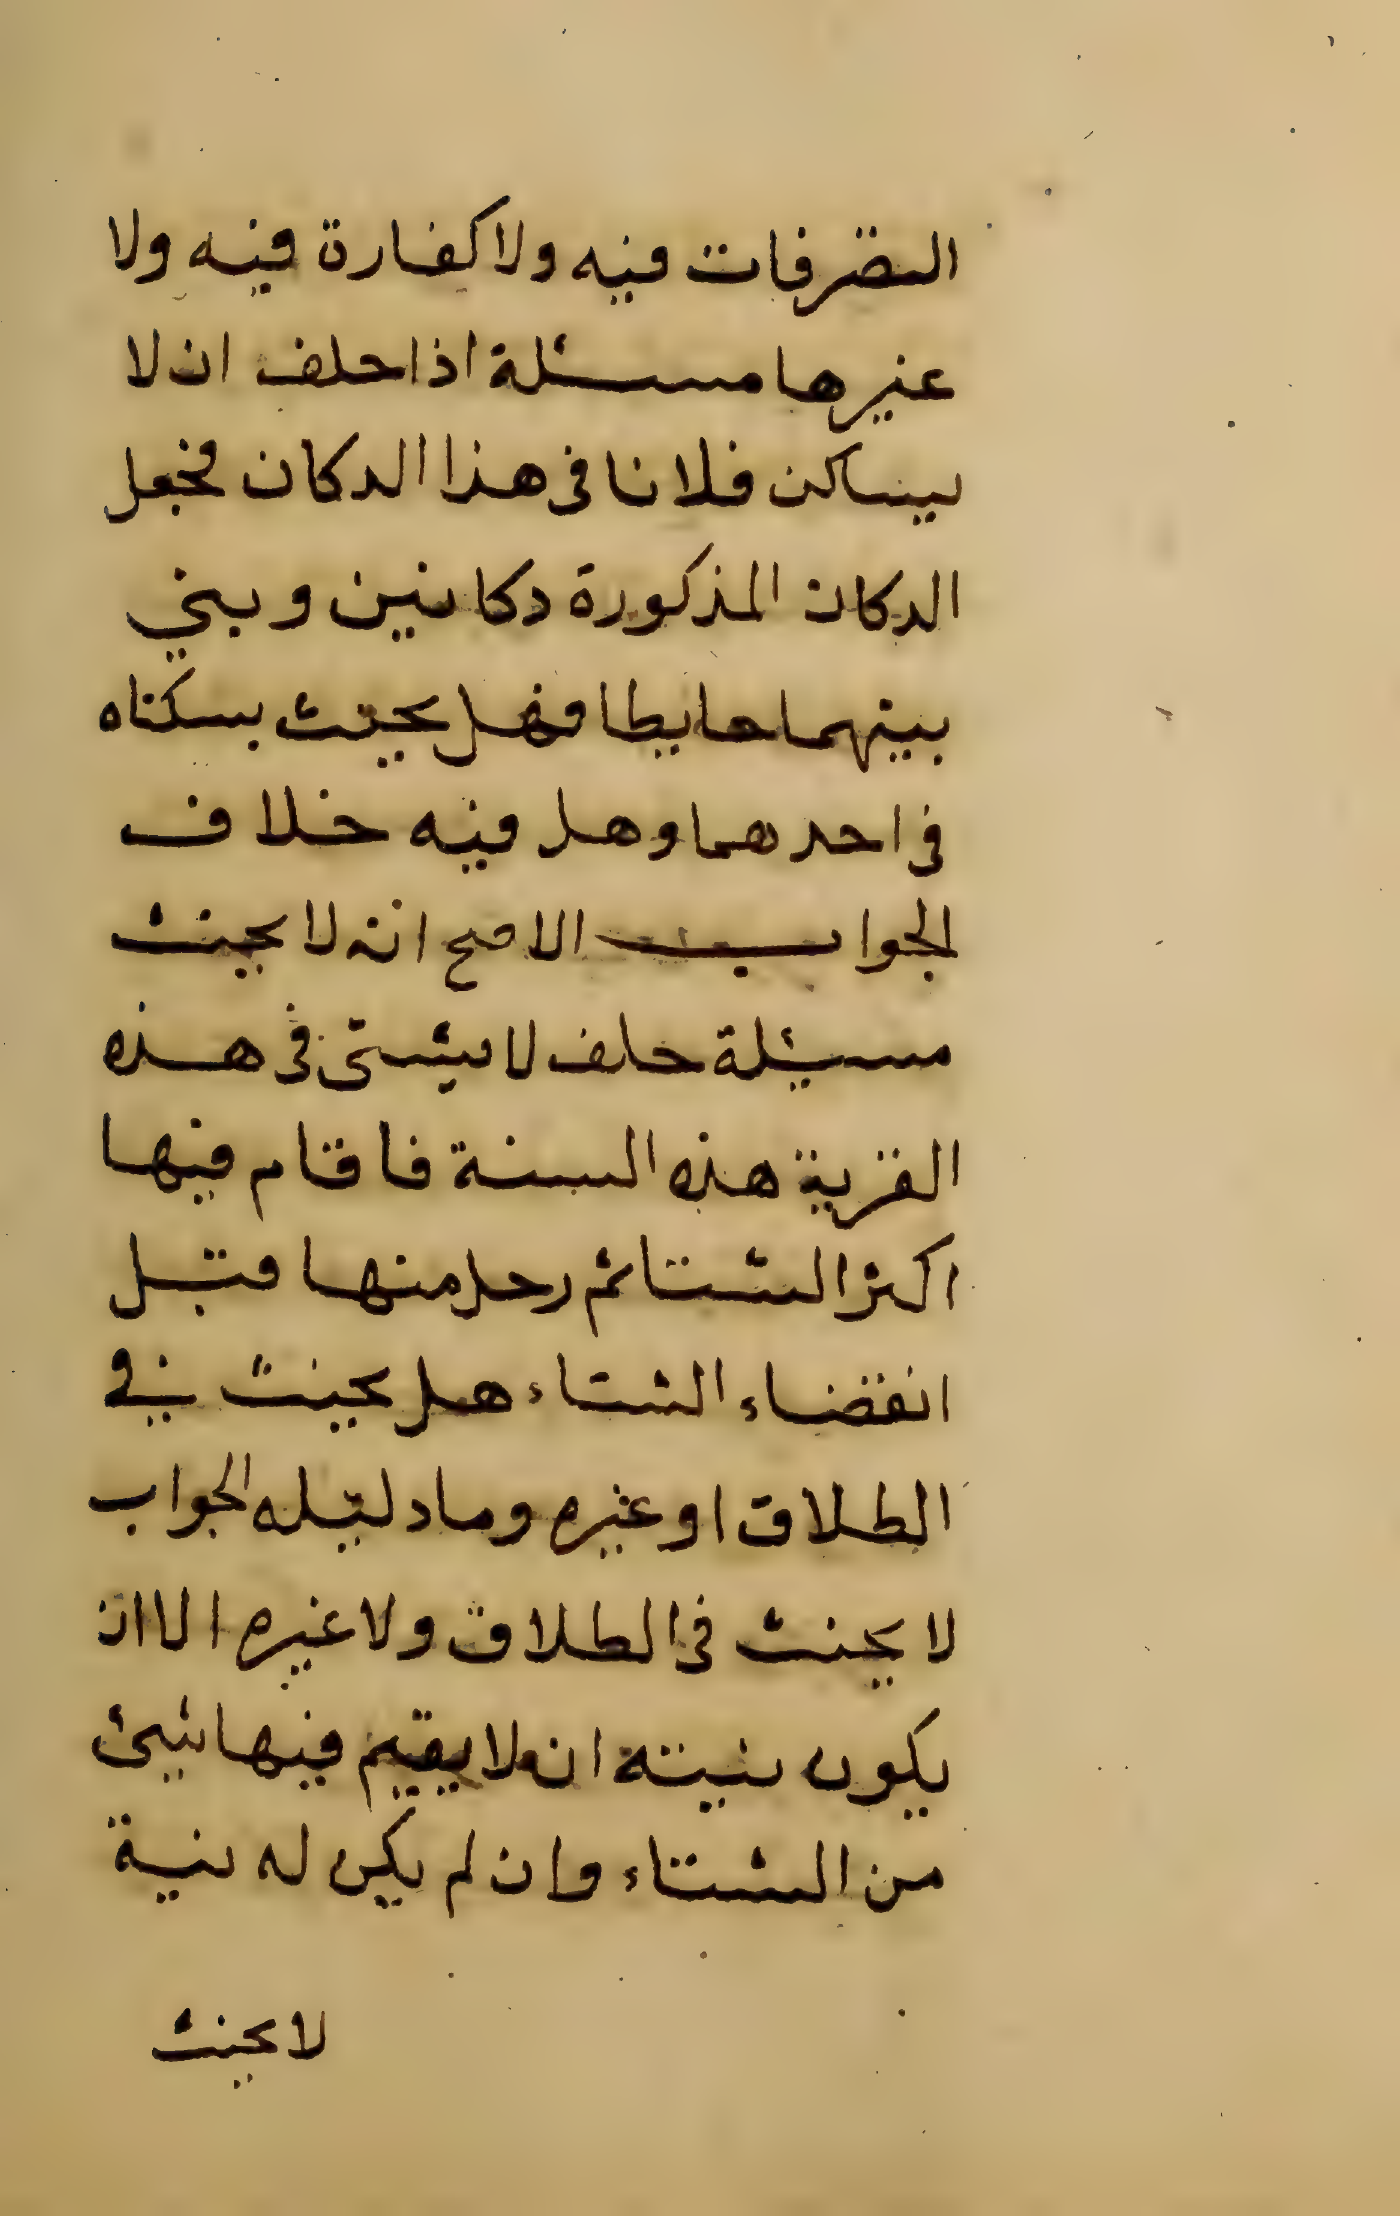 التصرفات فيه ولا كفارة فيه ولا
غيرها مسئلة اذا حلف ان لا
يساكن فلانا في هذا الدكان فجعل
الدكان المذكورة دكانين وبني
بينهما حايطا فهل يحنث بسكناه
في احدهما وهل فيه خلاف
الجواب الاصح انه لا يحنث
مسئلة حلف لا يشتي في هذه
القرية هذه السنة فاقام فيها
اكثر الشتا ثم رحل منها قبل
انقضاء الشتاء هل يحنث في
الطلاق او غيره وما دليله الجواب
لا يحنث في الطلاق ولا غيره الا ان
يكون نيته انه لا يقيم فيها شيئ
من الشتاء وان لم يكن له نية
لا يحنث